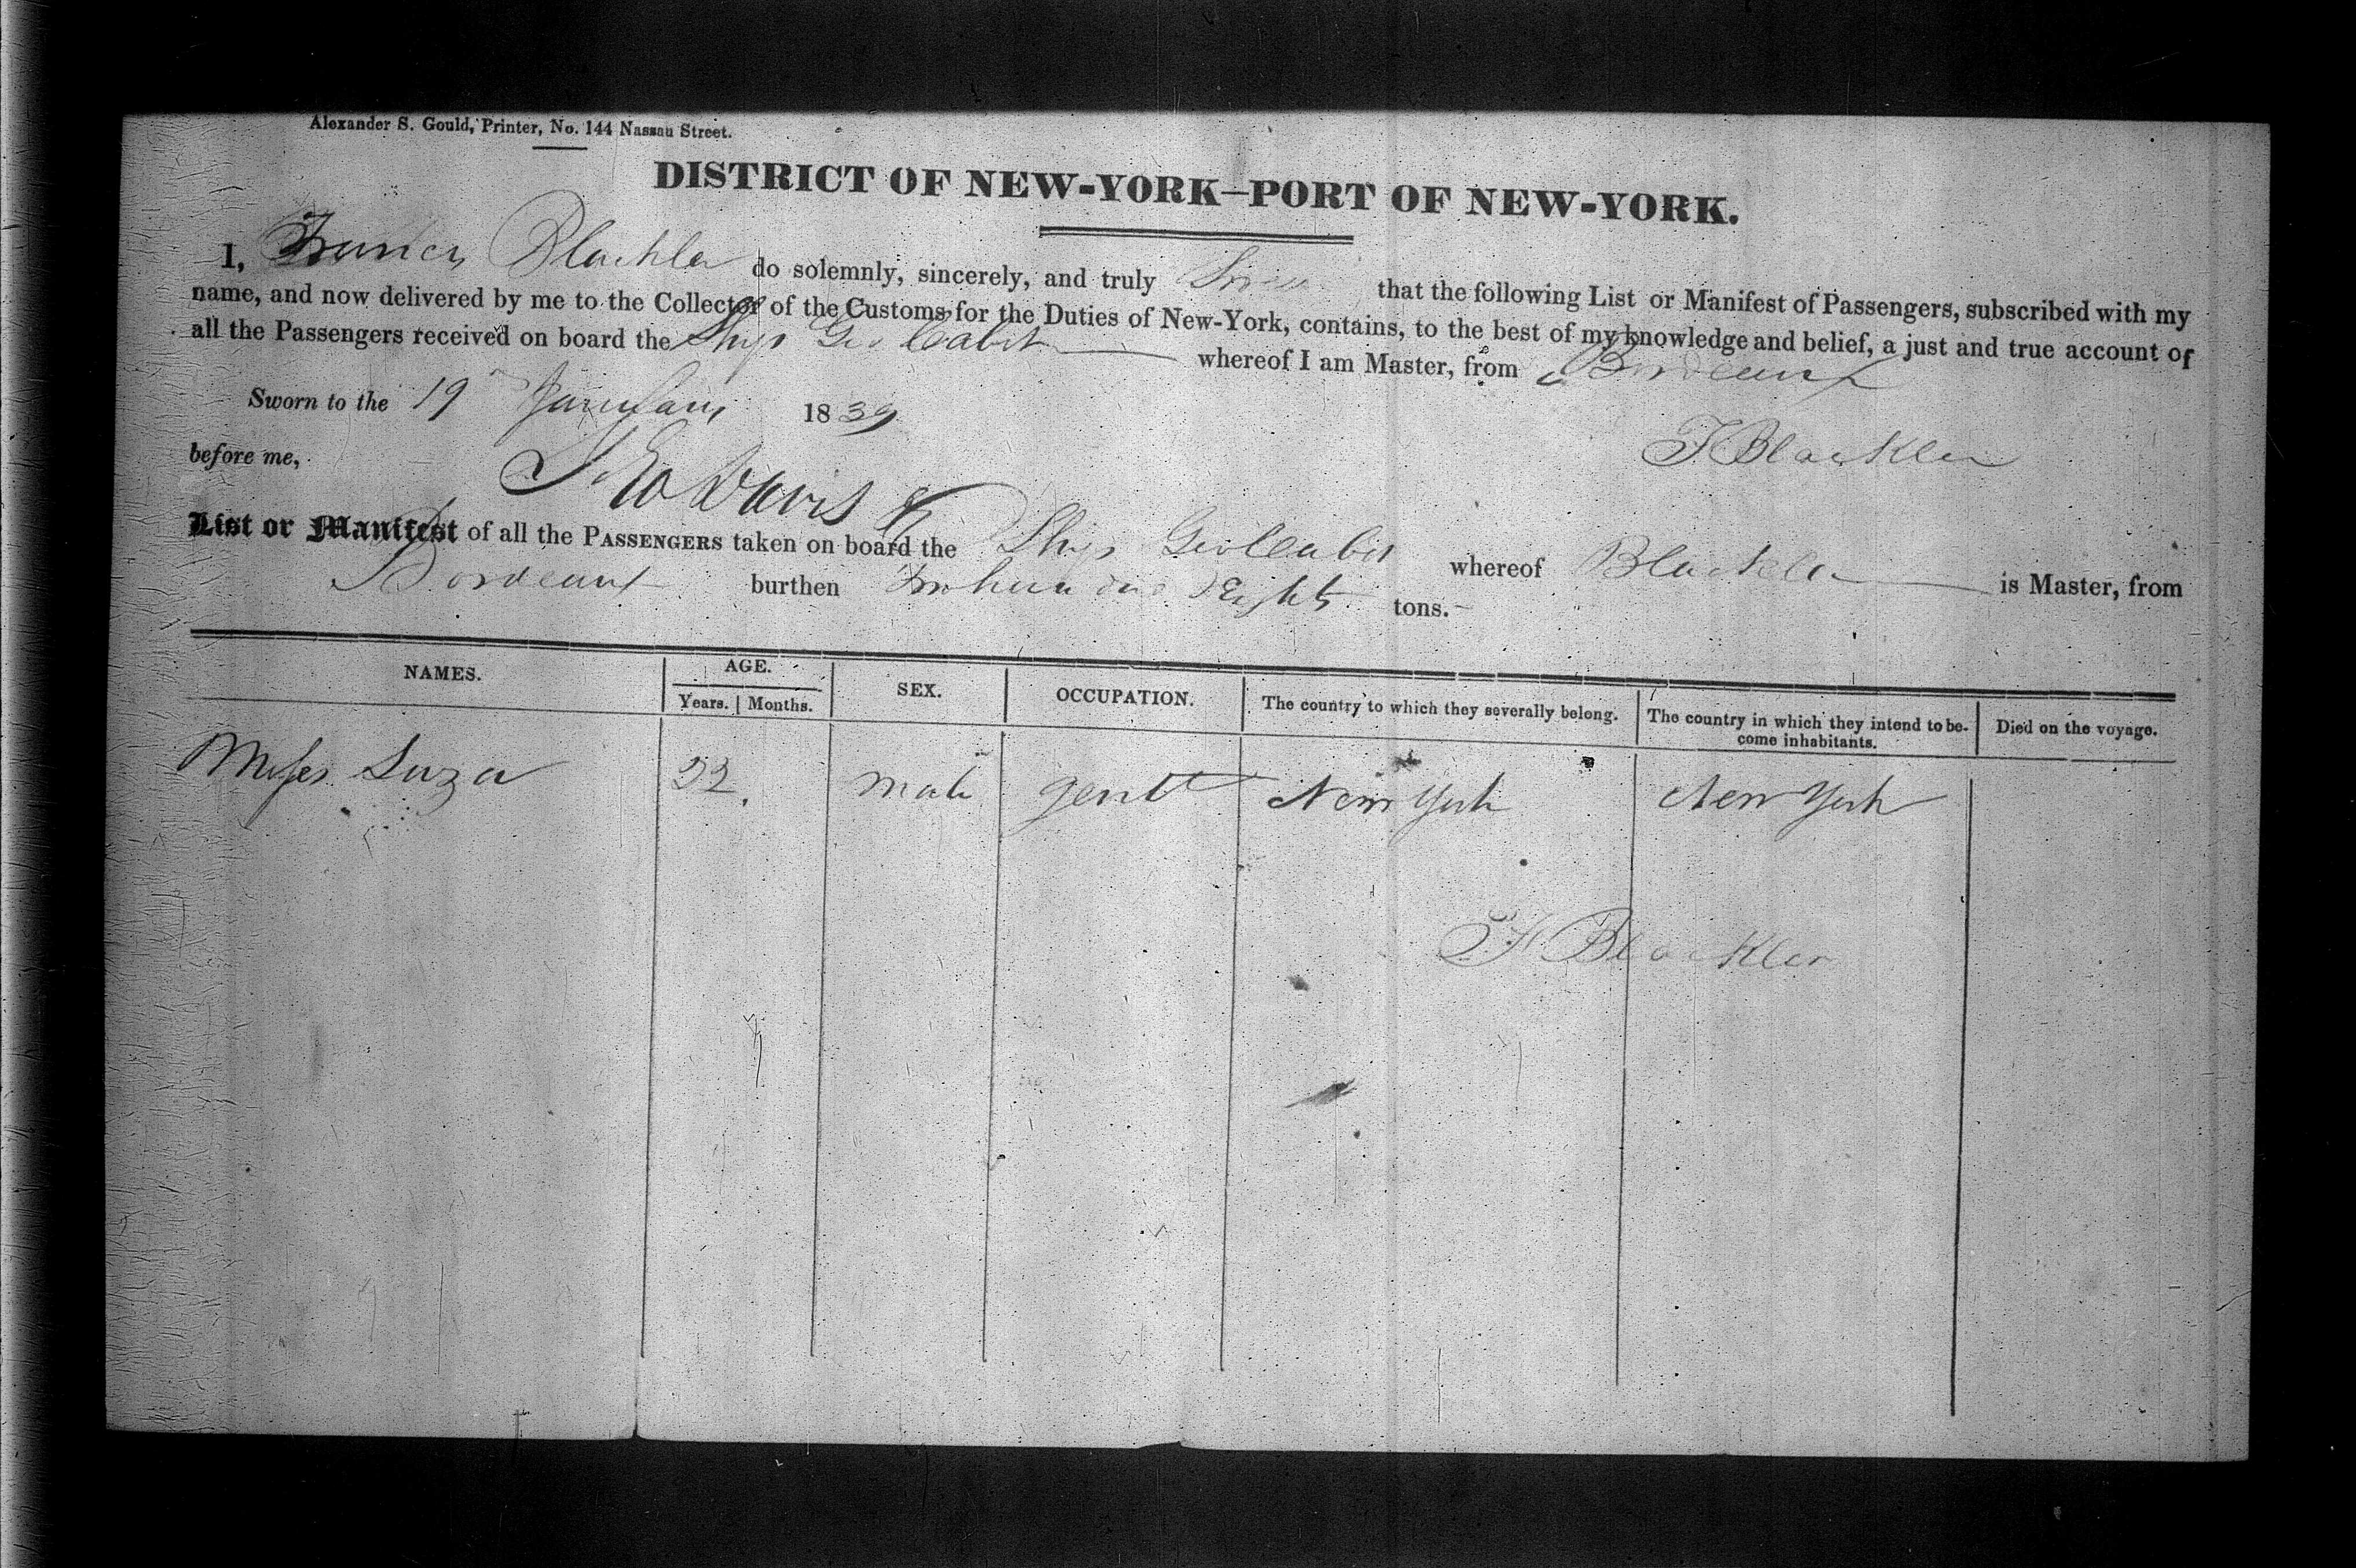 Alexander S. Gould, Printer, No. 144 Nassau Street.
DISTRICT OF NEW-YORK—PORT OF NEW-YORK.
I, Francis Blackler do solemnly, sincerely, and truly Swear that the following List or Manifest of Passengers, subscribed with my
name, and now delivered by me to the Collector of the Customs for the Duties of New-York, contains, to the best of my knowledge and belief, a just and true account of
all the Passengers received on board the Ship Geo Cabot whereof I am Master, from Bordeaux
Sworn to the 19 January 1839
F Blackler
before me,
Davis
List or Manifest of all the PASSENGERS taken on board the Ship Geo Cabot whereof Blackler is Master, from
Bordeaux burthen Eighty tons.
NAMES. AGE. SEX. OCCUPATION. The country to which they severally belong. The country in which they intend to be-come inhabitants. Died on the voyage.
Years. Months.
Suza male gent New York New York
F Blackler